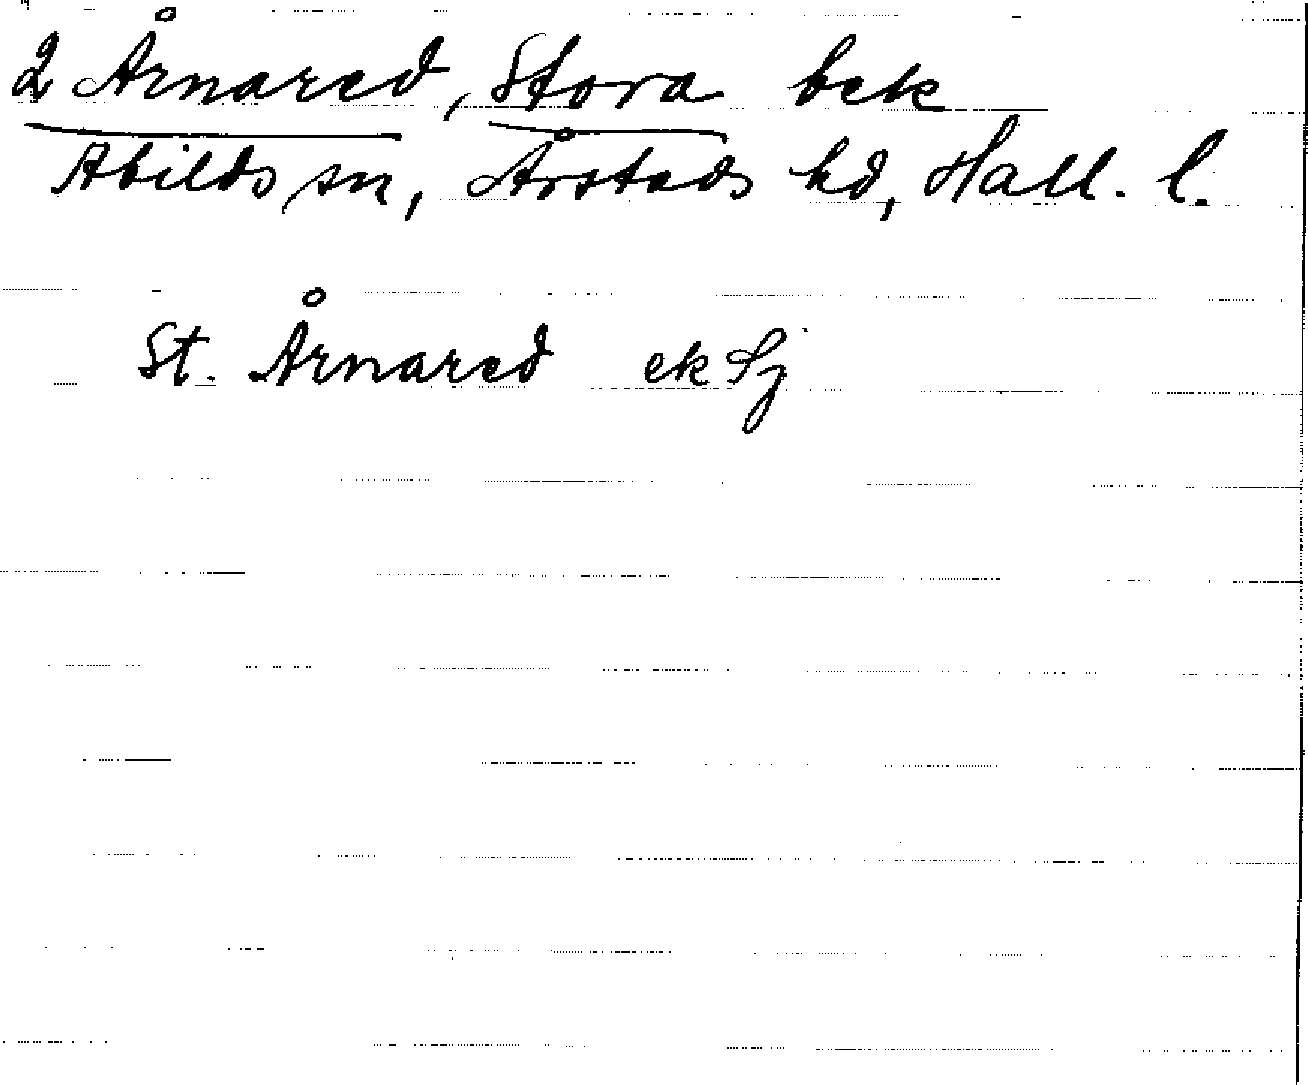 2 Årnared, Stora bek
Abilds sn, Årstads hd, Hall. l.
St. Årnared ek Sj